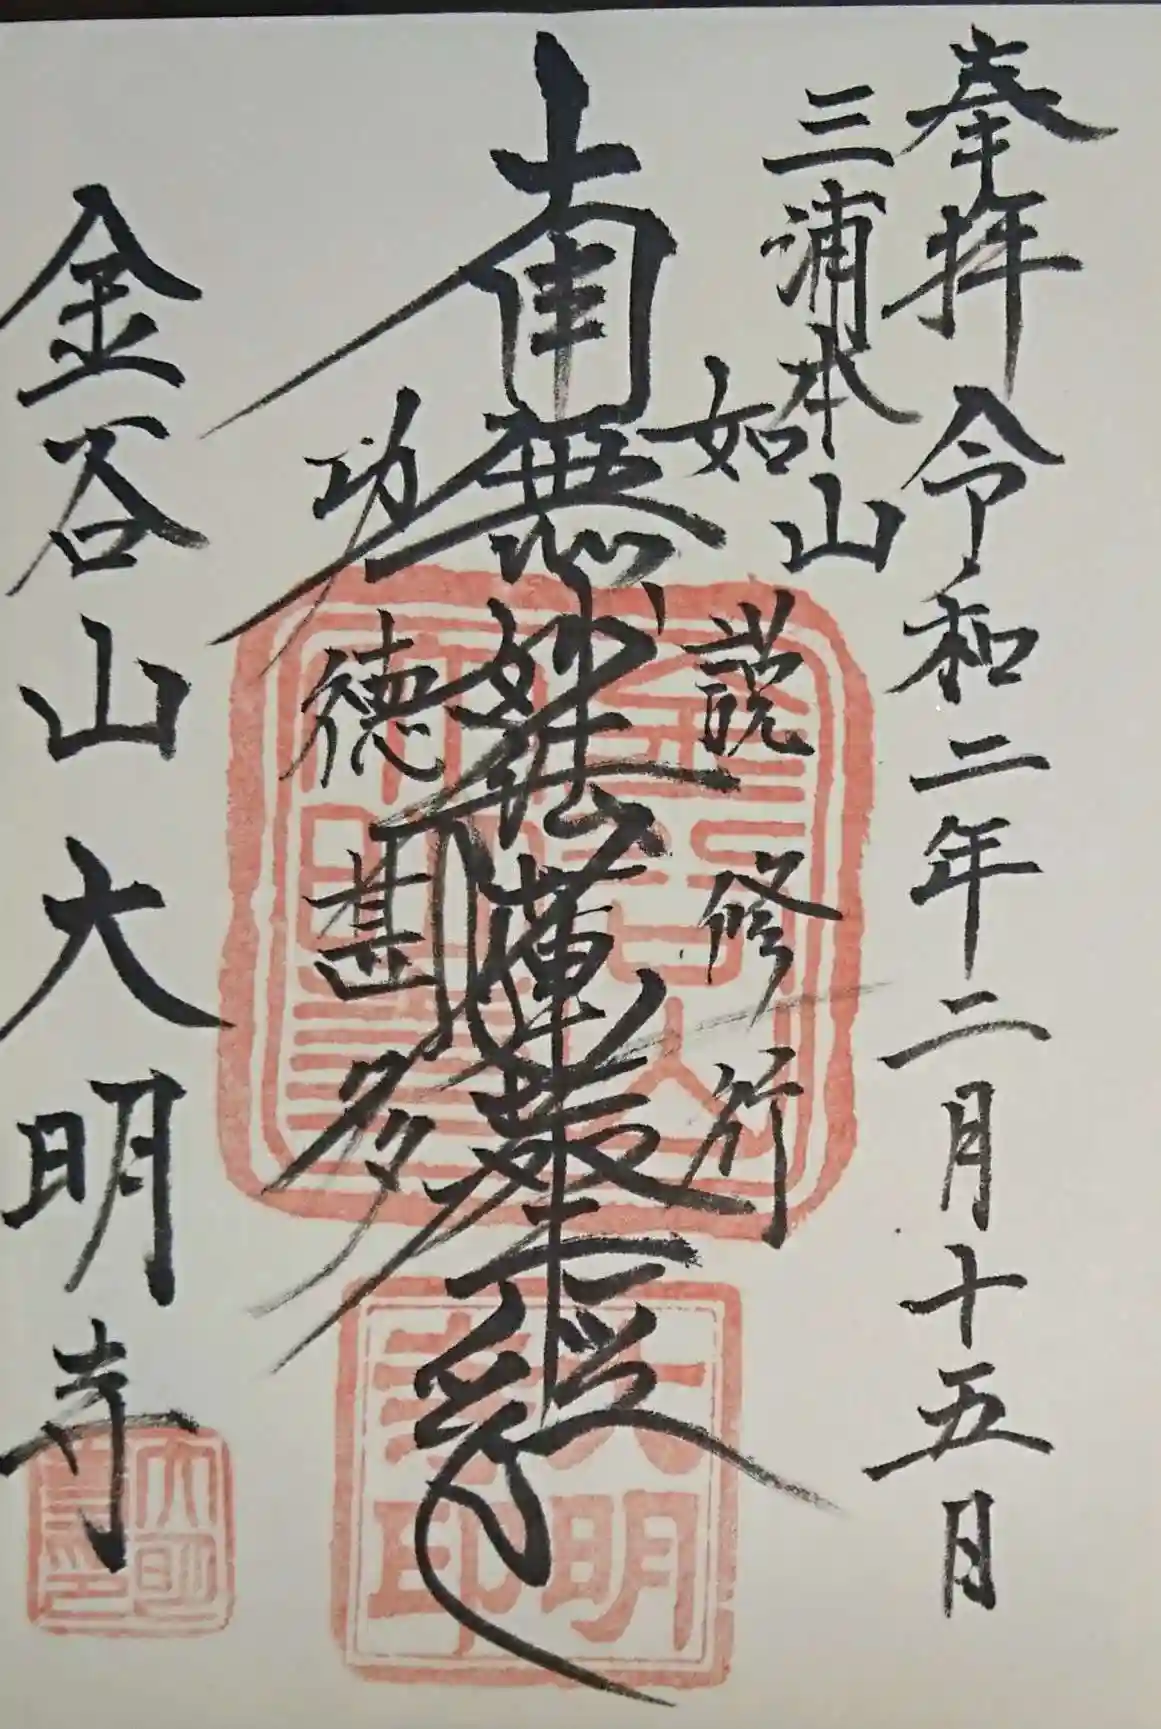 奉拝 令和二年二月十五日
三浦本山
如説修行
南無妙法蓮華経
功徳甚多
金谷山大明寺
大明寺印